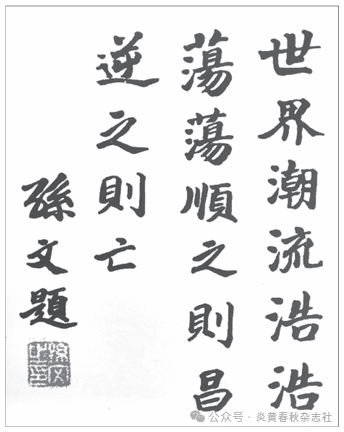 世界潮流浩浩
蕩蕩順之則昌
逆之則亡
孫文題
孫文之印
公众号·炎黄春秋杂志社